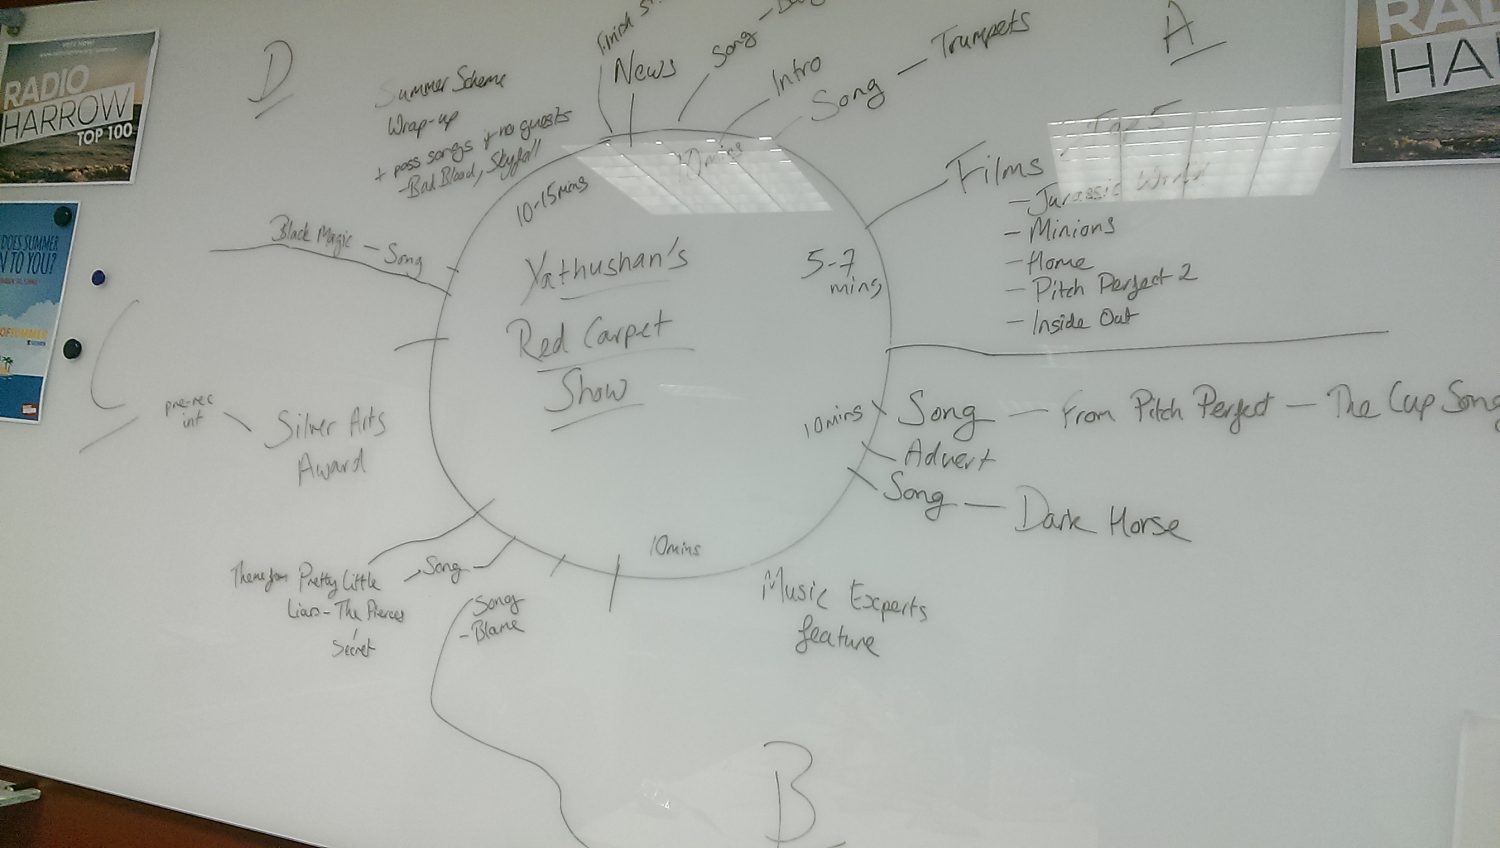 RADIO
HARROW
TOP 100
DOES SUMMER
N TO YOU?
OF SUMMER
D
Summer Scheme
Wrap-up
+ poss songs if no guests
- Bad Blood, Skyfall
Finish
News
Song -
Intro
Song - Trumpets
A
RAD
HA
10 mins
Films - Top 5
- Jurassic World
- Minions
- Home
- Pitch Perfect 2
- Inside Out
5-7
mins
10-15 mins
Black Magic - Song
Yathushan's
Red Carpet
Show
10 mins
Song - From Pitch Perfect - The Cup Song
Advert
Song - Dark Horse
pre-rec
int
Silver Arts
Award
10 mins
Music Experts
feature
Song
Theme from Pretty Little
Liars - The Pierces
Secret
Song
- Blame
B